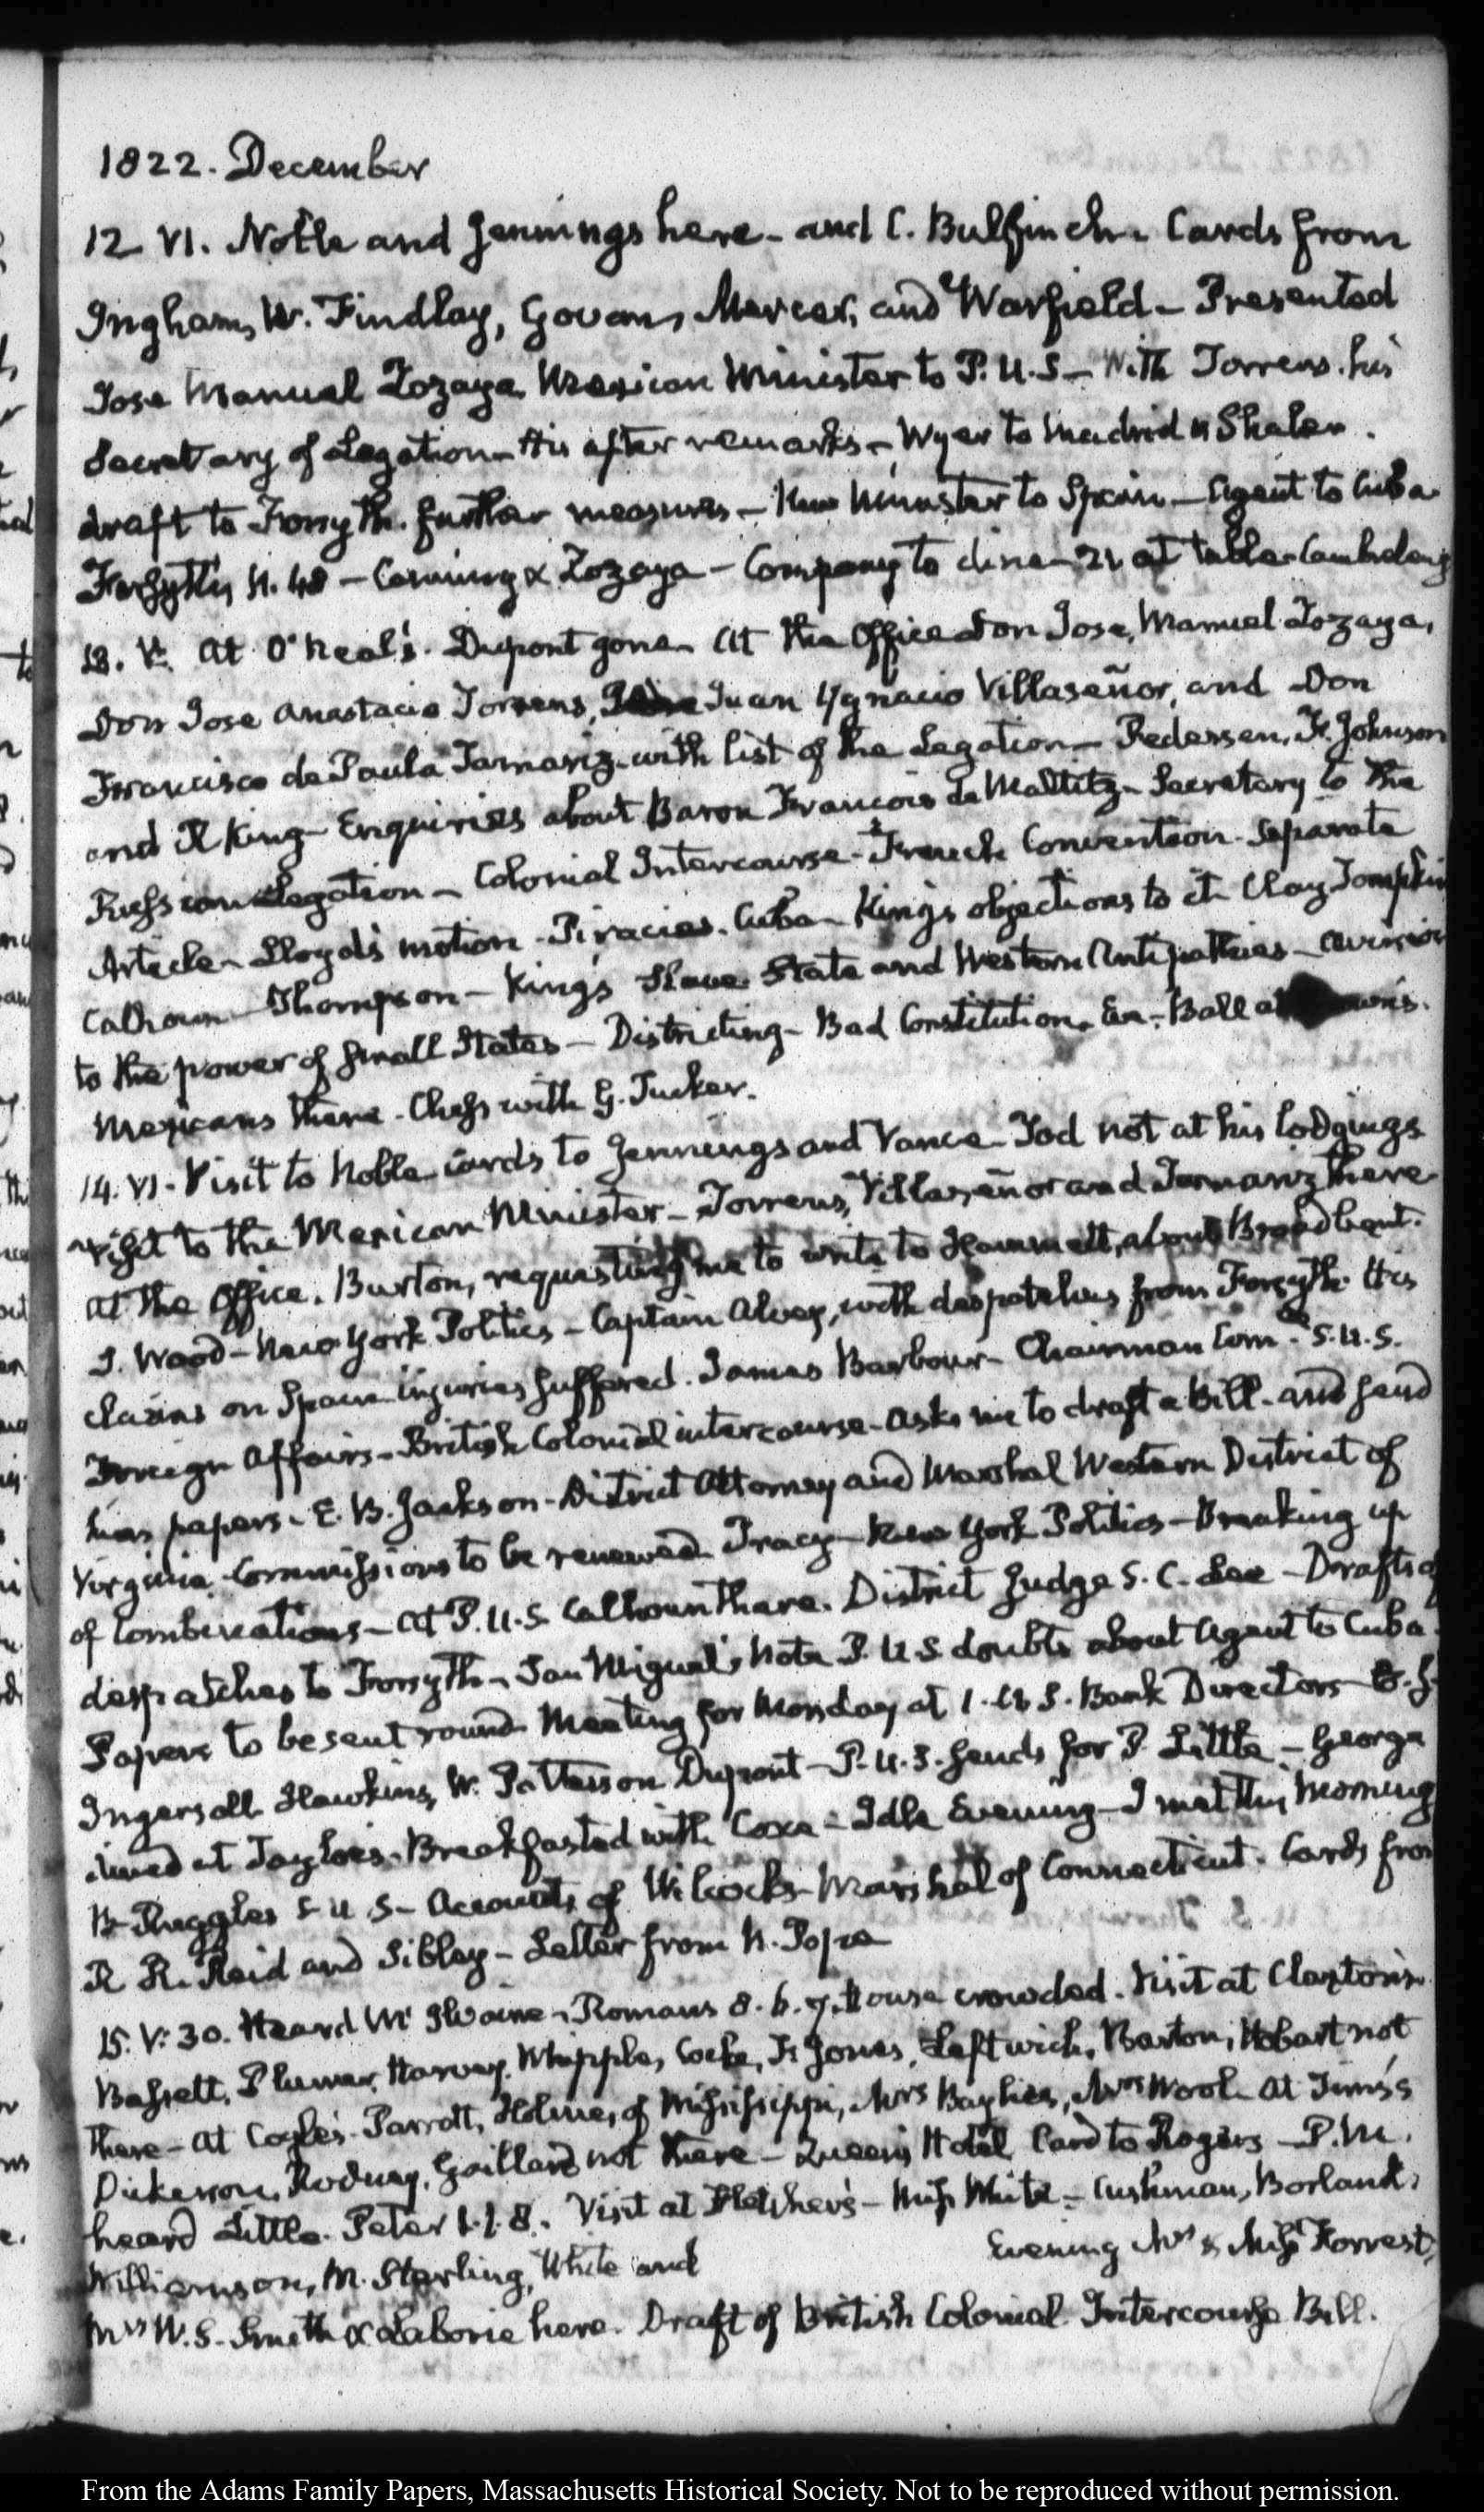 1822. December
12 VI. Noble and Jennings here - and C. Bulfinch. Cards from
Ingham, W. Findlay, Govan, Mercer, and Warfield - Presented
Jose Manuel Zozaya Mexican Minister to P. U. S - With Torrens his
Secretary of Legation - His after remarks - Wyer to Madrid Shaler
draft to Forsyth. further measures - New Minister to Spain - Agent to Cuba
Forsyth, N. 48 - Canning & Zozaya - Company to dine - 21 at table
13. V. At O'Neal's. Dupont gone. At the Office Don Jose Manuel Zozaya,
Don Jose Anastacio Torrens, Juan Ygnacio Villaseñor, and Don
Francisco de Paula Tamariz with list of the Legation - Pedersen, F. Johnson
and R King - Enquiries about Baron Francois de Maltitz - Secretary to the
Russian Legation - Colonial Intercourse - French Convention - Separate
Article - Lloyd's motion - Piracies. Cuba - King's objections to it Clay Tompkin
Calhoun Thompson - King's Slave State and Western Antipathies - aversion
to the power of small States - Districting - Bad Constitution. Eve - Ball at
Mexicans there - Chess with G. Tucker.
14. VI. Visit to Noble cards to Jennings and Vance - Tod not at his lodgings
Visit to the Mexican Minister - Torrens, Villaseñor and Tamariz there
At the Office. Burton, requesting me to write to Hammett, about Broadbent.
J. Wood - New York Politics - Captain Alvey, with despatches from Forsyth. His
claims on Spain injuries suffered. James Barbour - Chairman Com.ee S. U. S.
Foreign Affairs - British Colonial intercourse - asks me to draft a Bill - and send
him papers - E. B. Jackson - District Attorney and Marshal Western District of
Virginia. Commissions to be renewed. Tracy - New York Politics - Breaking up
of Combinations - At P. U. S. Calhoun there. District Judge S. C. Lee - Drafts of
despatches to Forsyth - San Miguel's Note P. U. S doubts about Agent to Cuba.
Papers to be sent round. Meeting for Monday at 1. U S. Bank Directors
Ingersoll Hawkins, W. Patterson Dupont - P. U. S. sends for P. Little - George
dined at Tayloe's. Breakfasted with Coxe - Idle Evening - I met this Morning
B. Ruggles S U S - Accounts of Wilcocks Marshal of Connecticut. Cards from
R R. Reid and Sibley - Letter from N. Pope
15. V: 30. Heard McIlvaine. Romans 8. 6. 7. House crowded. Visit at Claxton's.
Bassett, Plumer, Harvey, Whipple, Cocke, F. Jones, Leftwich, Barton, Hobart not
there - At Coyle's. Parrott, Holmes of Mississippi, Mrs Baylies, Mrs Wool. At Tims's
Dickerson, Rodney, Gaillard not there - Queen's Hotel Card to Rogers - P. M.
heard Little. Peter 1. 1. 8. Visit at Fletcher's - Miss White - Cushman, Borland,
Williamson, M. Sterling, White and Evening Mrs & Miss Forrest,
Mrs W. S. Smith & Laborie here. Draft of British Colonial Intercourse Bill.
From the Adams Family Papers, Massachusetts Historical Society. Not to be reproduced without permission.